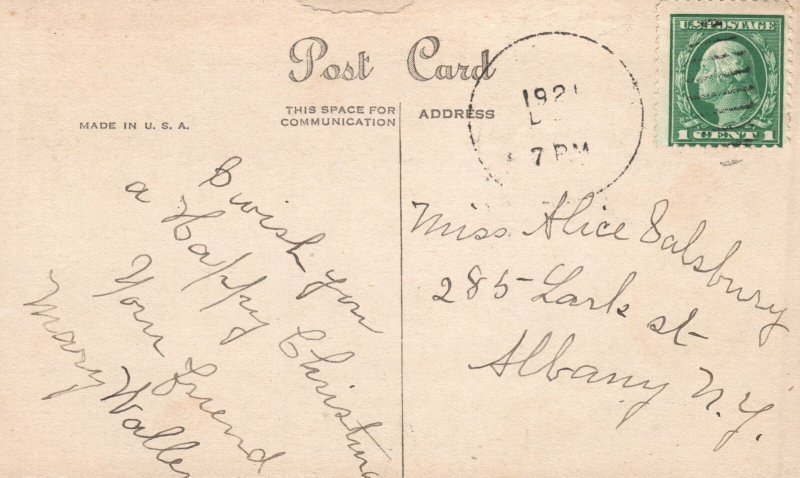 Post Card
THIS SPACE FOR
COMMUNICATION
ADDRESS
MADE IN U. S. A.
1921
7 PM
U.S. POSTAGE
1 CENT 1
I wish you
a Happy Christma
Your friend
Mary
Miss Alice Salsbury
285 Lark st
Albany N.Y.